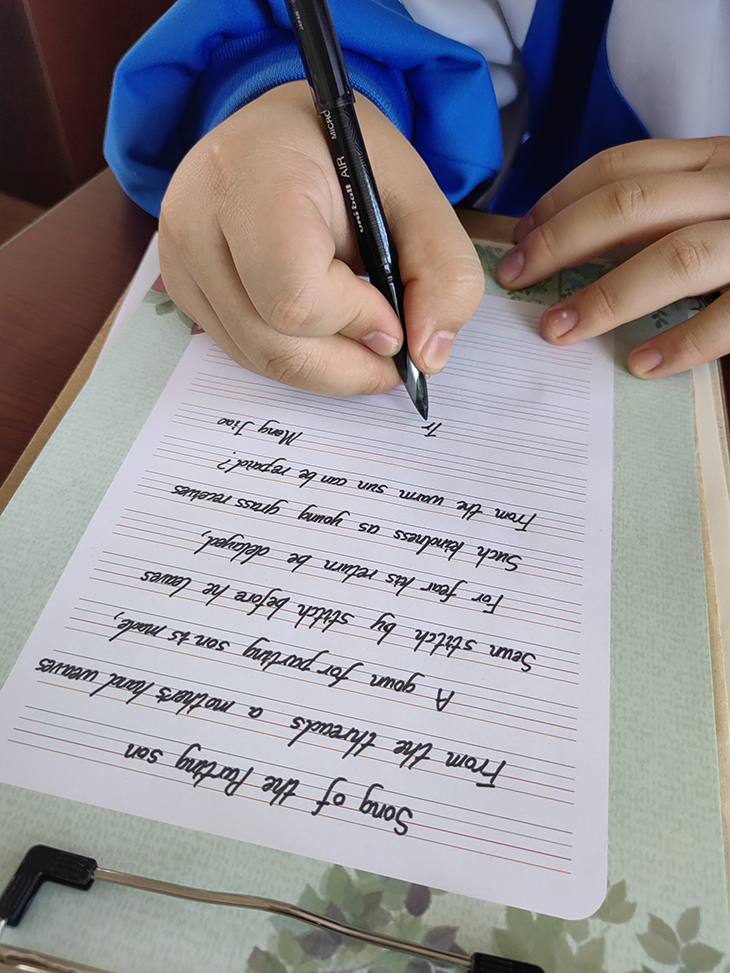 Song of the Parting son
From the threads a mother's hand weaves
A gown for parting son is made,
Sewn stitch by stitch before he leaves
For fear his return be delayed,
Such kindness as young grass receives
From the warm sun can be repaid?
Meng Jiao
Tr
uni-ball AIR MICRO
JAPAN